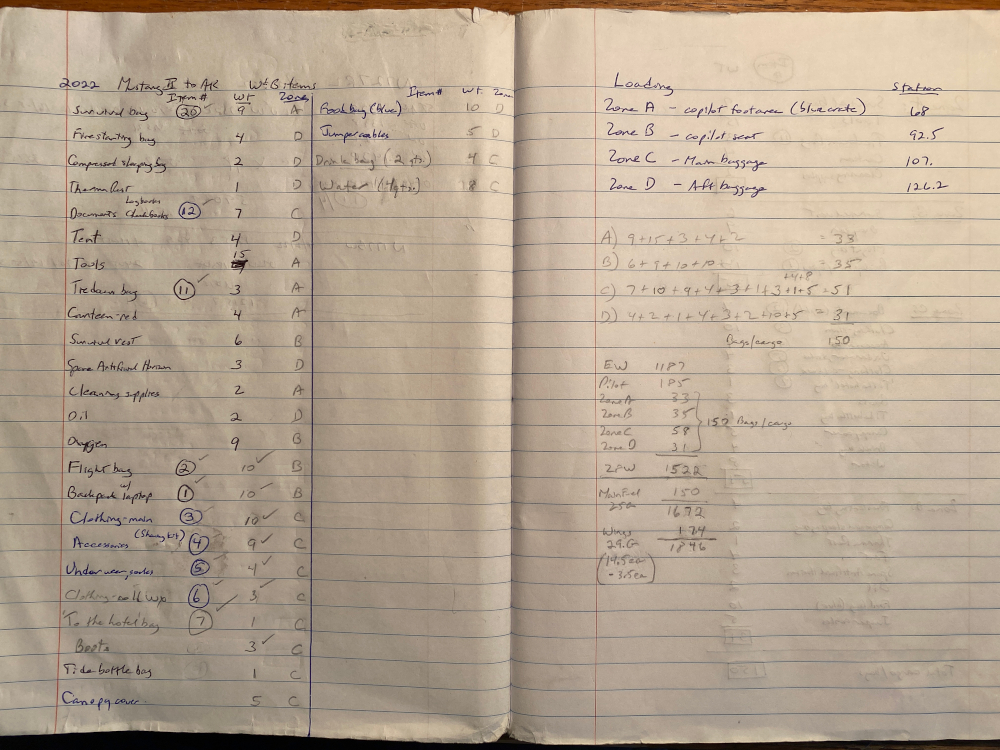 2022 Mustang II to AK Wt & B items
Item # Wt Zone
Survival bag 20 9 A
Firestarting bag 4 D
Compressed sleeping bag 2 D
ThermaRest 1 D
Logbooks
Documents Checkbooks 12 7 C
Tent 4 D
Tools 15 A
Tiedown bag 11 3 A
Canteen-red 4 A
Survival vest 6 B
Spare Artificial Horizon 3 D
Cleaning supplies 2 A
Oil 2 D
Oxygen 9 B
Flight bag 2 10 B
Backpack w/ laptop 1 10 B
Clothing-main 3 10 C
Accessories (Shaving kit) 4 9 C
Underwear, socks 5 4 C
Clothing-cold wx 6 3 C
To the hotel bag 7 1 C
Boots 3 C
Tide bottle bag 1 C
Canopy cover 5 C
Item # Wt. Zone
Food bag (blue) 10 D
Jumper cables 5 D
Drink bag (2 qts.) 4 C
Water (4 qts.) 8 C
Loading Station
Zone A - copilot footarea (blue crate) 68
Zone B - copilot seat 92.5
Zone C - Main baggage 107.
Zone D - Aft baggage 126.2
A) 9+15+3+4+2 = 33
B) 6+9+10+10 = 35
+4+8
C) 7+10+9+4+3+1+3+1+5 = 51
D) 4+2+1+4+3+2+10+5 = 31
Bags/cargo 150
EW 1187
Pilot 185
Zone A 33
Zone B 35
Zone C 58
Zone D 31
157 Bags/cargo
ZFW 1522
Main Fuel 150
25G 1672
Wings 174
29.G 1846
(19.5 ea
-3.5 ea)